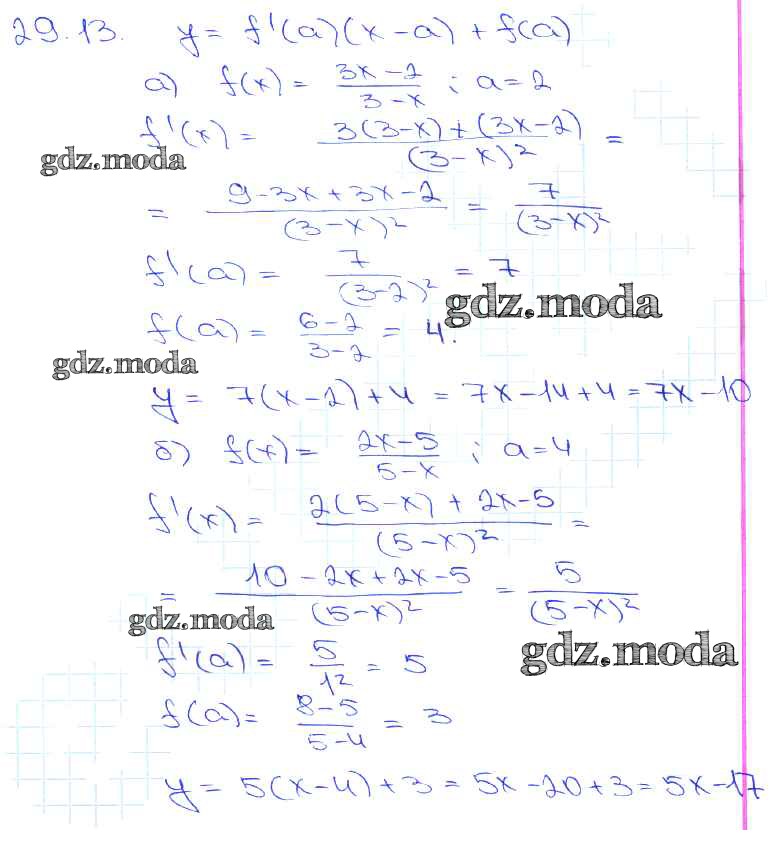 29.13. y = f'(a)(x-a) + f(a)
а) f(x) = (3x-2)/(3-x) ; a=2
f'(x) = (3(3-x)+(3x-2))/(3-x)² =
gdz.moda
= (9-3x+3x-2)/(3-x)² = 7/(3-x)²
f'(a) = 7/(3-2)² = 7
gdz.moda
f(a) = (6-2)/(3-2) = 4.
gdz.moda
y = 7(x-2)+4 = 7x-14+4 = 7x-10
б) f(x) = (2x-5)/(5-x) ; a=4
f'(x) = (2(5-x)+2x-5)/(5-x)² =
= (10-2x+2x-5)/(5-x)² = 5/(5-x)²
gdz.moda
f'(a) = 5/1² = 5
gdz.moda
f(a) = (8-5)/(5-4) = 3
y = 5(x-4)+3 = 5x-20+3 = 5x-17